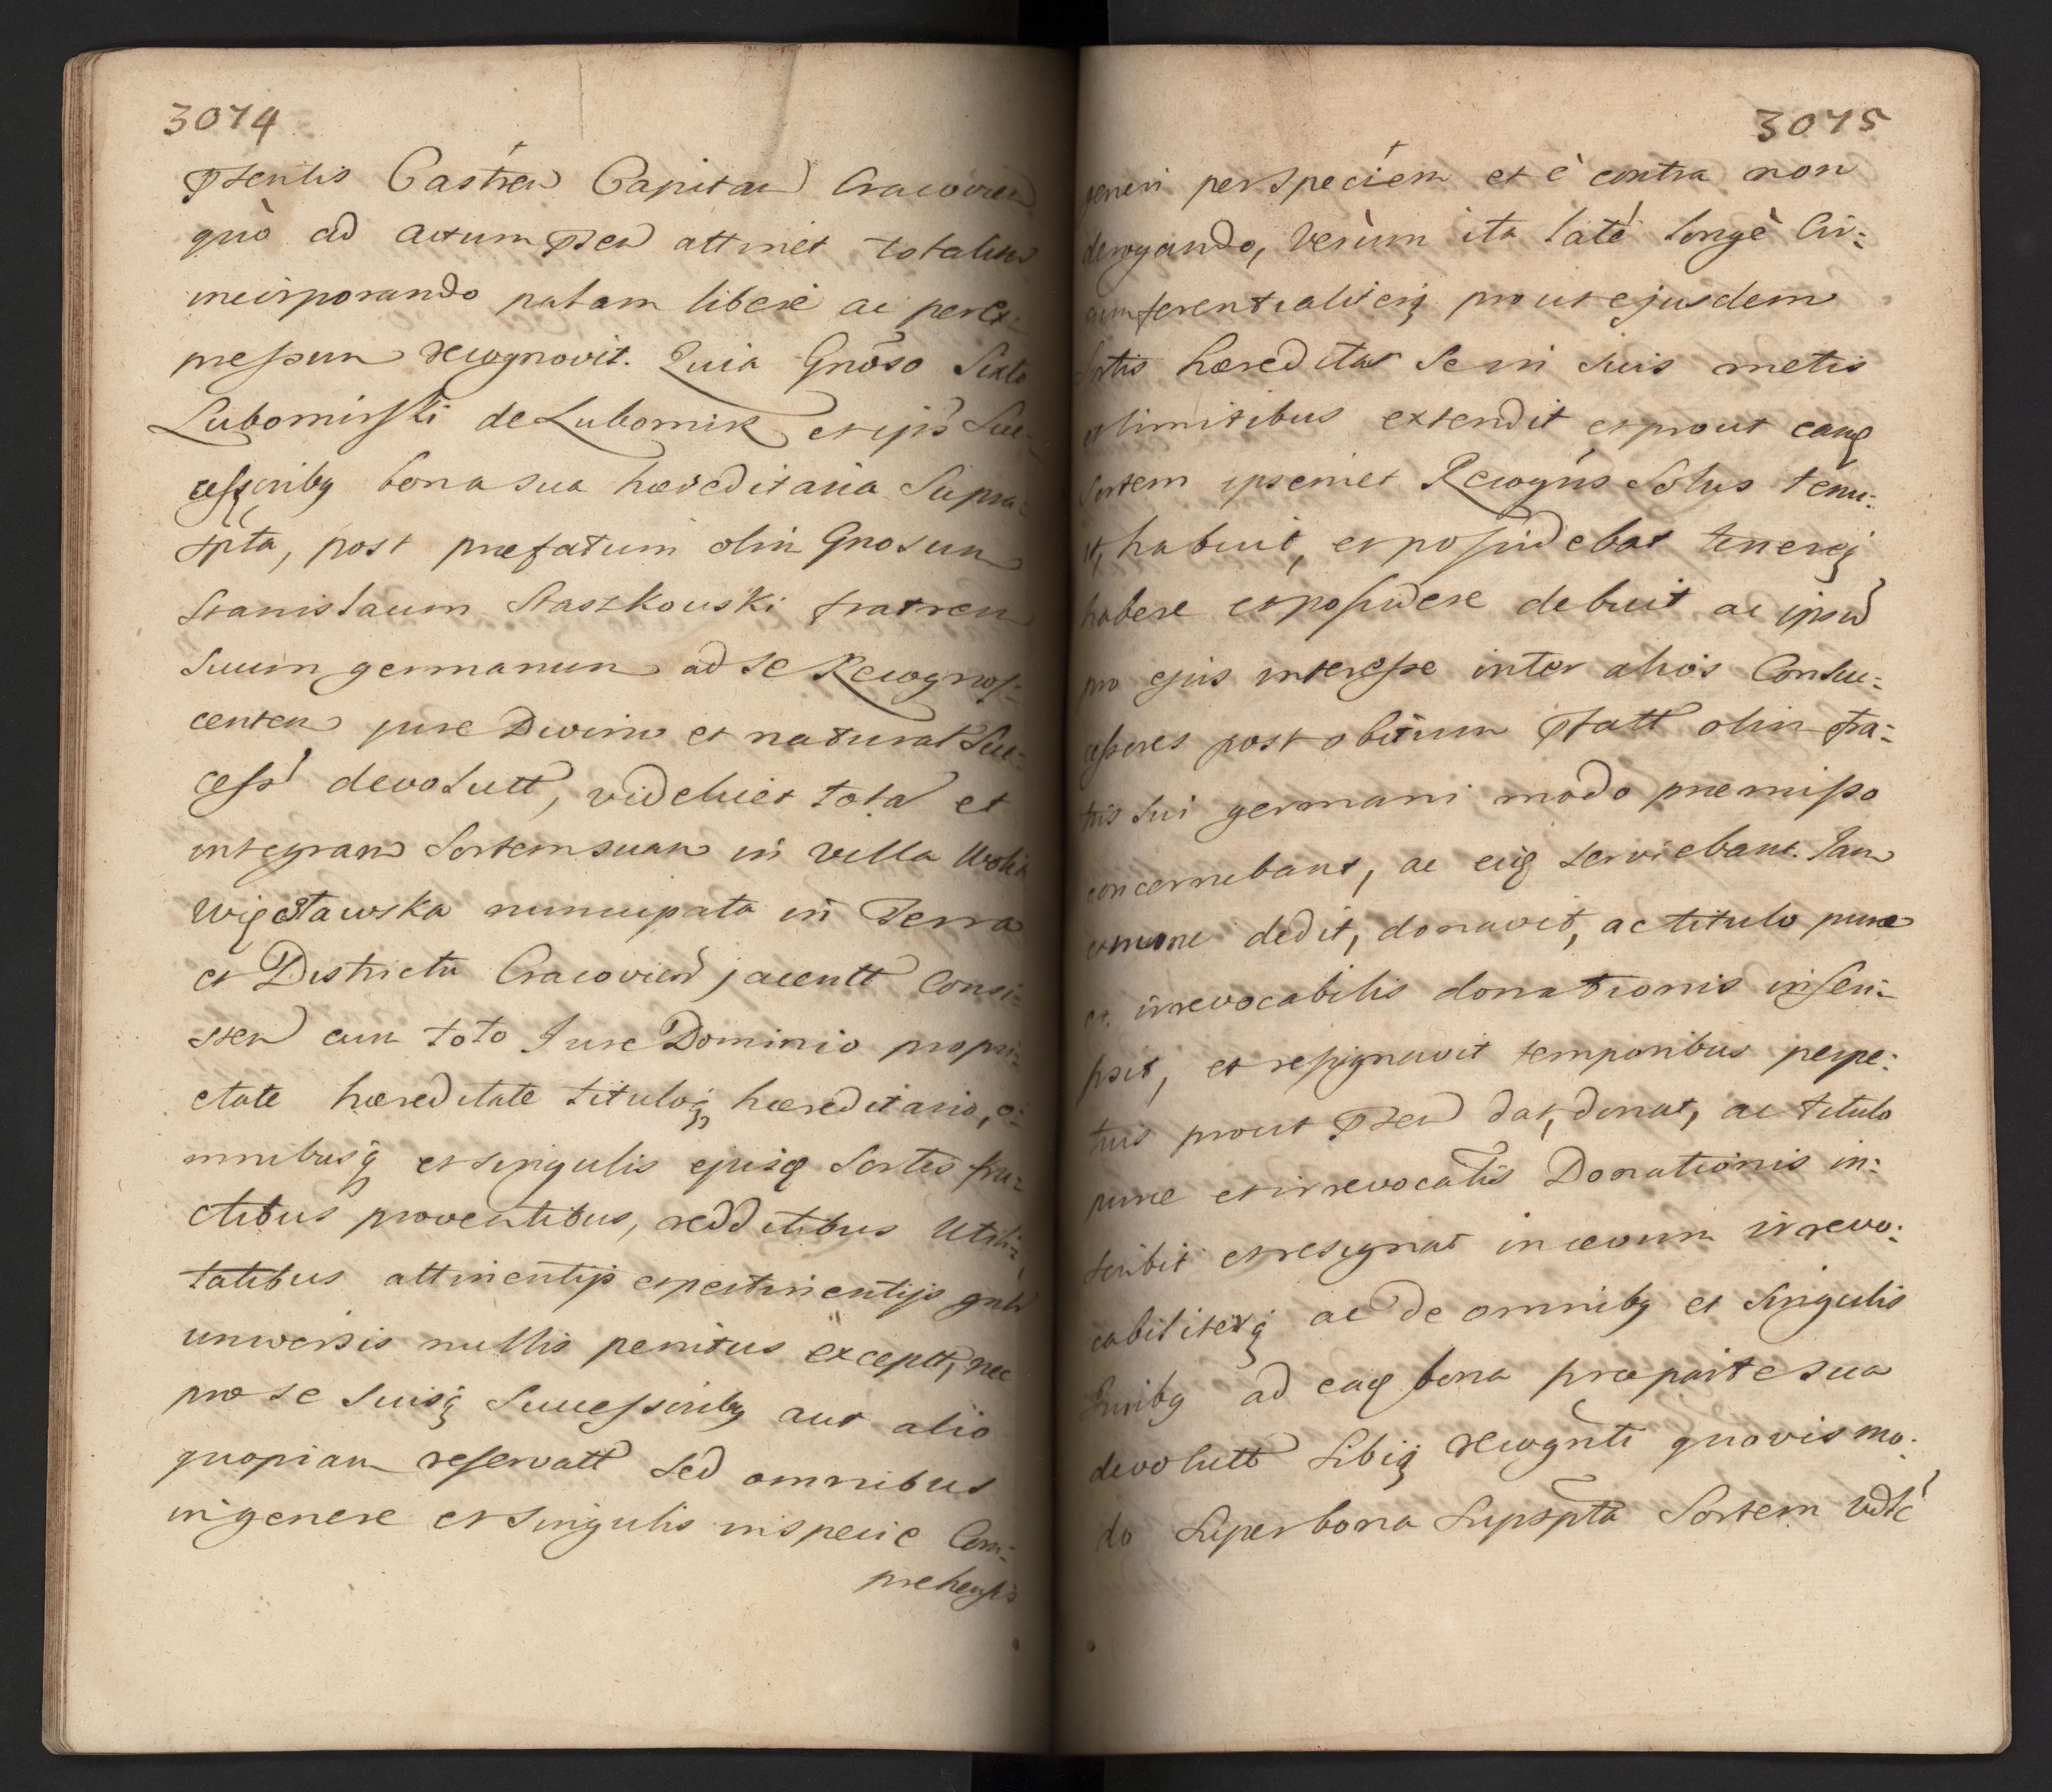 3074
Pntis Castren Capitan Cracovien
quò ad actum Pnten attinet totaliter
incorporando palam liberè ac perex-
pressum recognovit. Quia Gnoso Sixto
Lubomirski de Lubomirz et ipsi Suc-
cessoribq bona sua hæreditaria Supra-
spta, post præfatum olim Gnosum
Stanislaum Staszkouski fratrem
Suum germanum ad se Recognos-
centem jure Divino et natural Suc-
cess devolutt, videlicet totam et
integram Sortem suam in villa Wola
Więcławska nuncupata in Terra
et Districtu Cracovien jacentt Consi-
sten cum toto Jure Dominio propri-
etate hæreditate tituloq hæreditario, o-
mnibusq et singulis ejusq Sortis fru-
ctibus proventibus, redditibus Utili-
tatibus attinentijs et pertinentijs gnlr
universis nullis penitus exceptt, nec
pro se Suisq Successoribq aut alio
quopiam reservatt sed omnibus
in genere et singulis in specie Com-
prehensis
3075
generi per speciem et è contra non
derogando, verùm ita latè longè Cir-
cumferentialiterq prout ejusdem
Sortis hæreditas Se in suis metis
et limitibus extendit et prout eanq
Sortem ipsemet Recogns Solus tenu-
it, habuit, et possidebat tenereq
habere et possidere debuit ac ipsum
pro ejus interesse inter alios Consuc-
cessores post obitum Pfatt olim fra-
tris Sui germani modo præmisso
concernebant, ac eiq serviebant. Jam
et nunc dedit, donavit, ac titulo puræ
et irrevocabilis donationis inscri-
psit, et resignavit temporibus perpe-
tuis prout Pnten dat, donat, ac titulo
puræ et irrevocalis Donationis in-
scribit et resignat in ævum irrevo-
cabiliterq ac de omnibq et Singulis
Juribq ad eaq bona pro parte sua
devolutt Sibiq recognti quovis mo-
do Super bona Supspta Sortem vdlt